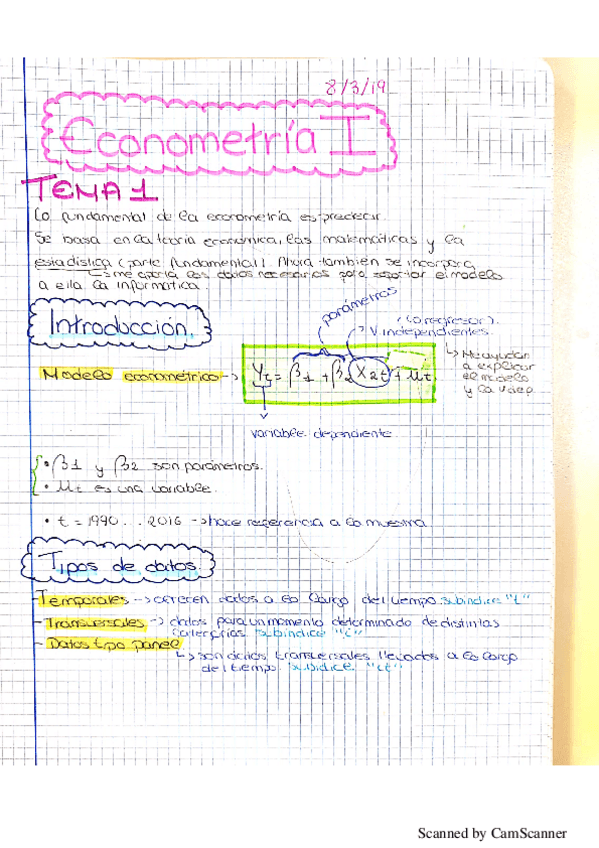 8/3/19
Econometría I
TEMA 1
Lo fundamental de la econometría es predecir.
Se basa en la teoría económica, las matemáticas y la
estadística (parte fundamental). Ahora también se incorpora
↳ me aporta los datos necesarios para soportar el modelo
a ella la informática.
parámetros
(o regresor).
Introducción.
→ V independientes.
Modelo econométrico → Yt = β1 + β2 X2t + μt
↳ Me ayudan
a explicar
el modelo
y la v dep.
variable dependiente
• β1 y β2 son parámetros.
• μt es una variable.
• t = 1990 ... 2016 → hace referencia a la muestra
Tipos de datos
- Temporales → ofrecen datos a lo largo del tiempo subíndice "t"
- Transversales → datos para un momento determinado de distintas
categorías. subíndice "i"
- Datos tipo panel
↳ son datos transversales llevados a lo largo
del tiempo. subidice "it"
Scanned by CamScanner